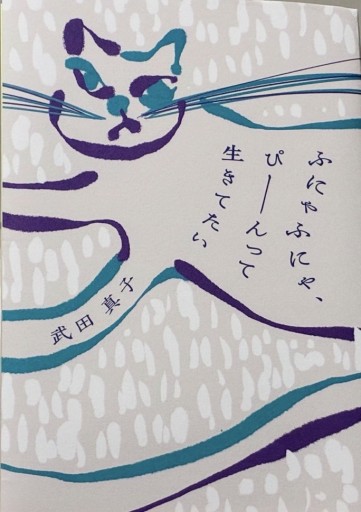 ふにゃふにゃ、
ぴーんって
生きてたい
武田 真子